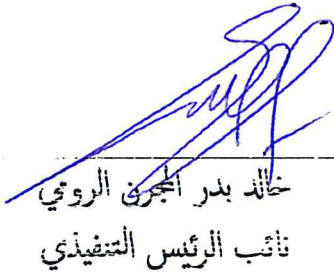 خالد بدر المجرن الرومي
نائب الرئيس التنفيذي